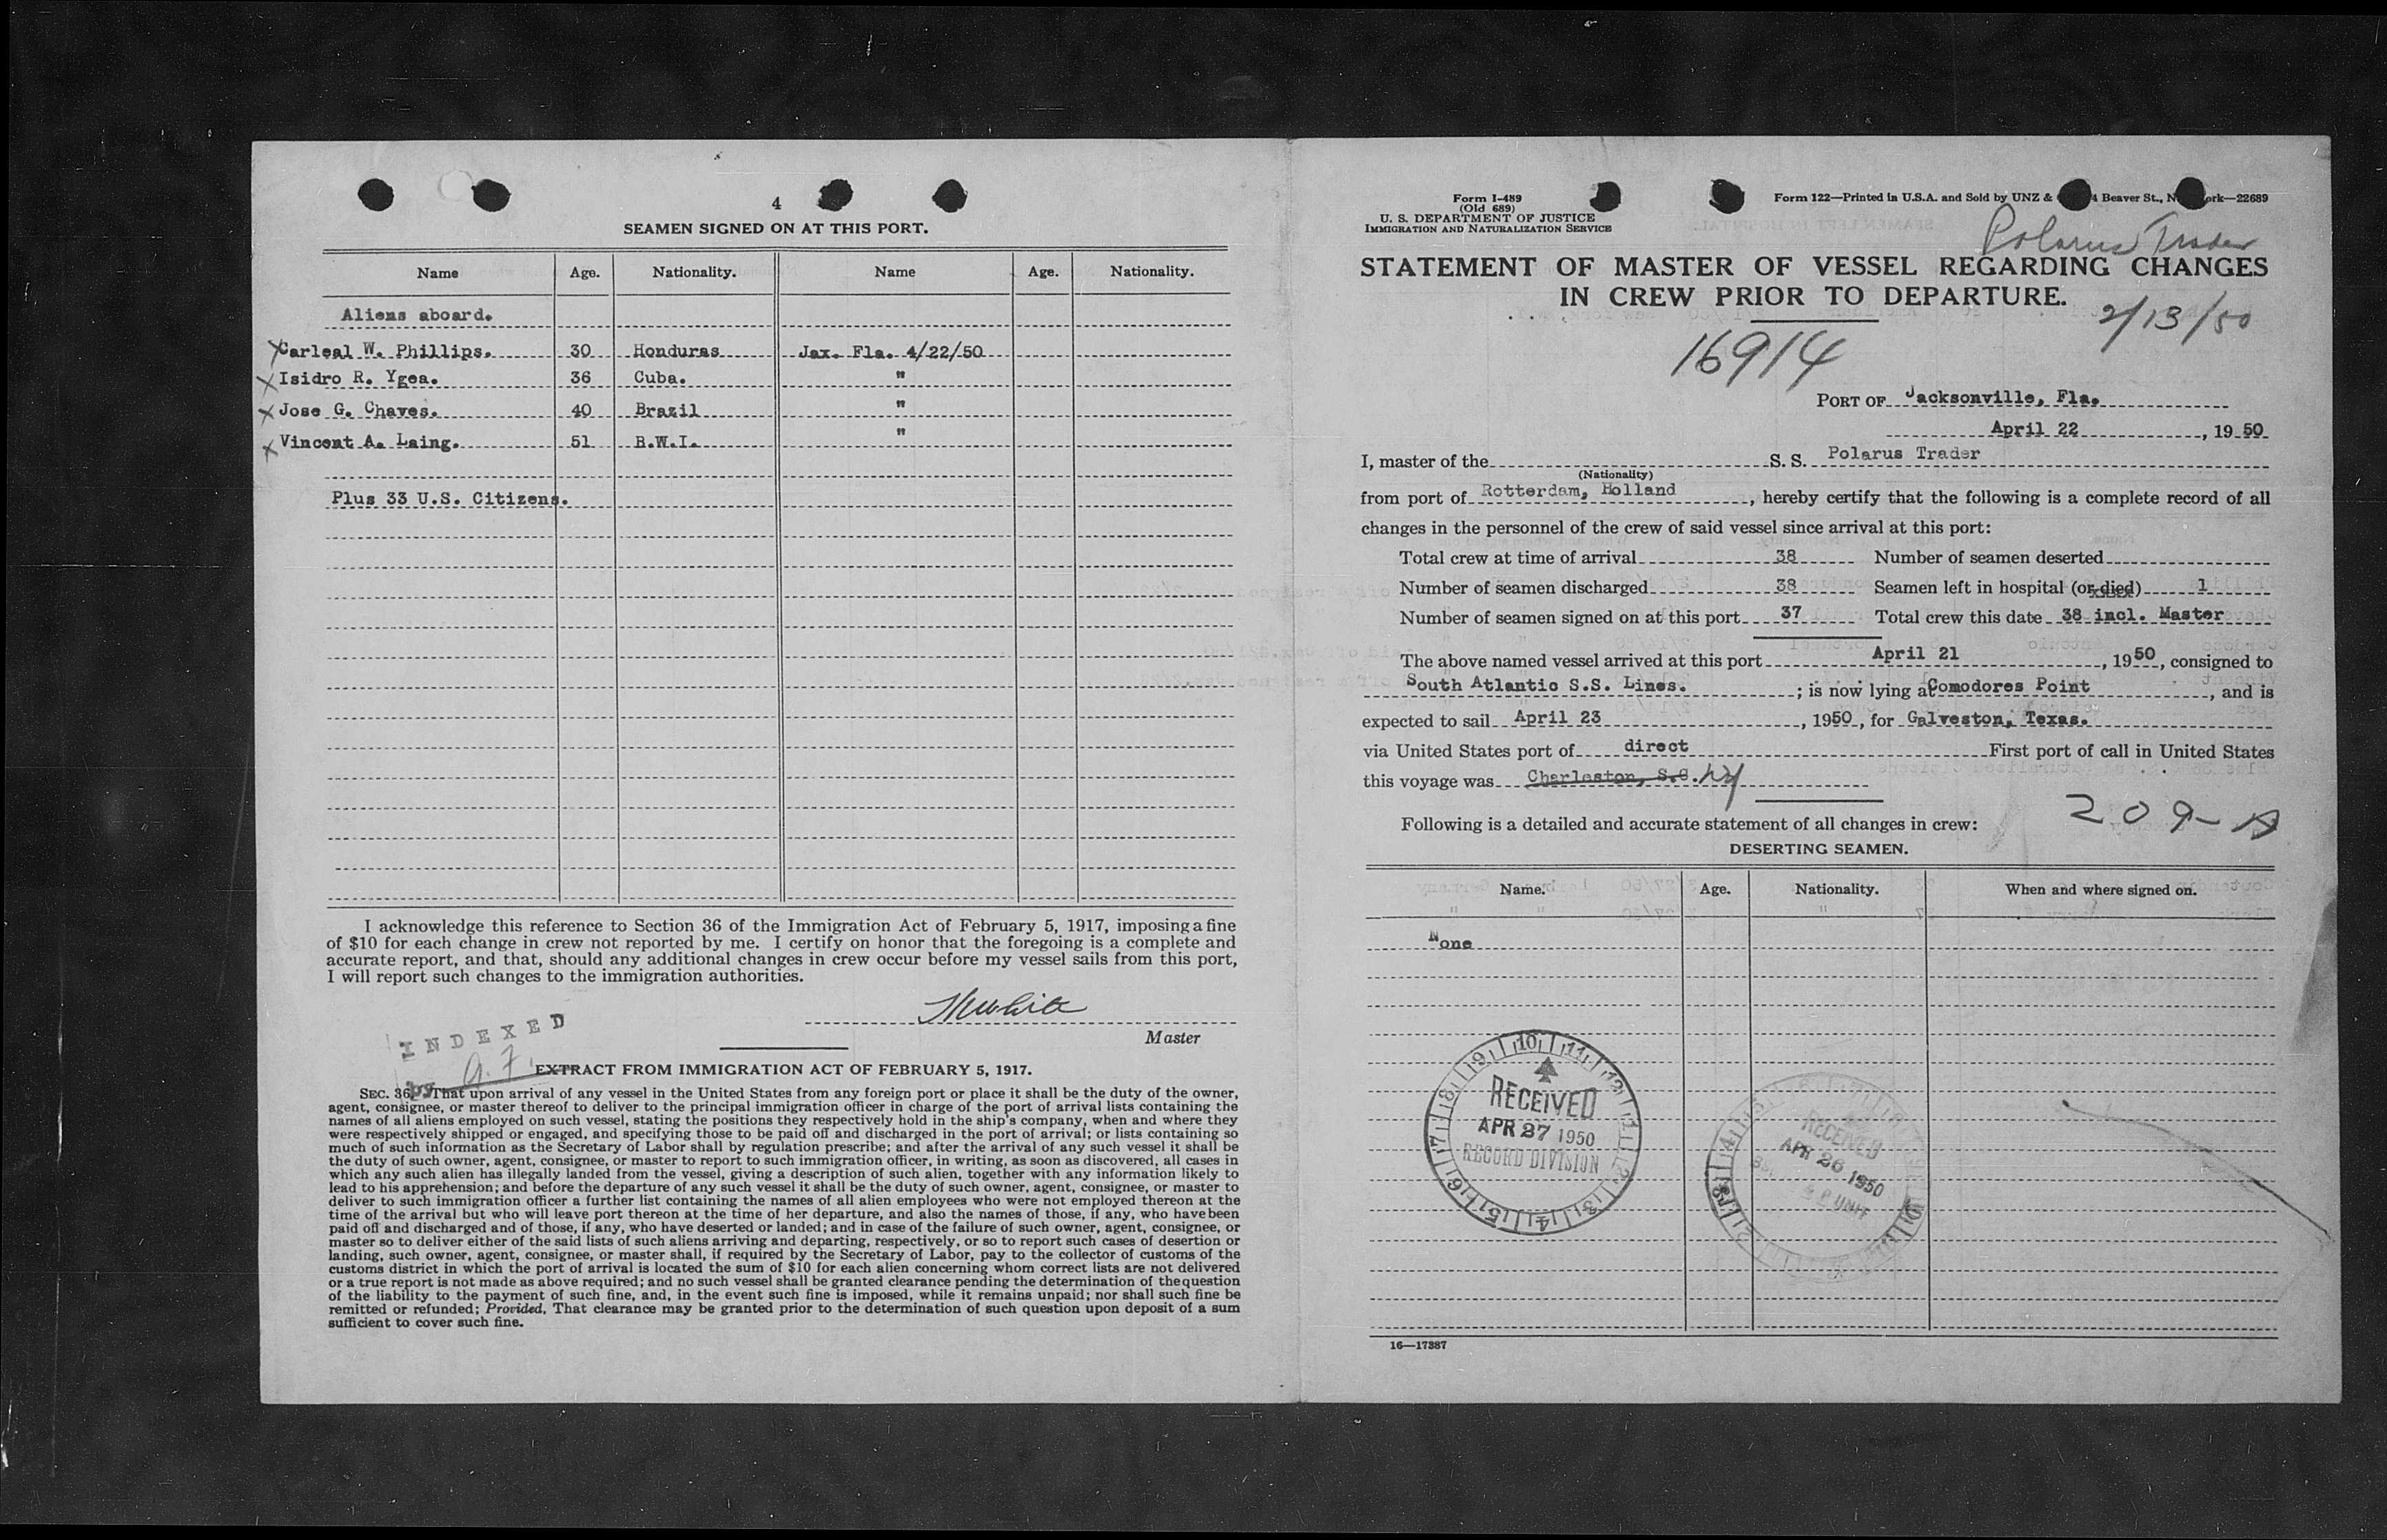 4
SEAMEN SIGNED ON AT THIS PORT.
Name Age. Nationality. Name Age. Nationality.
Aliens aboard.
XCarleal W. Phillips. 30 Honduras Jax. Fla. 4/22/50
X Isidro R. Ygea. 36 Cuba. "
X Jose G. Chaves. 40 Brazil "
X Vincent A. Laing. 51 B.W.I. "
Plus 33 U.S. Citizens.
I acknowledge this reference to Section 36 of the Immigration Act of February 5, 1917, imposing a fine
of $10 for each change in crew not reported by me. I certify on honor that the foregoing is a complete and
accurate report, and that, should any additional changes in crew occur before my vessel sails from this port,
I will report such changes to the immigration authorities.
Master
INDEXED
by
EXTRACT FROM IMMIGRATION ACT OF FEBRUARY 5, 1917.
SEC. 36. That upon arrival of any vessel in the United States from any foreign port or place it shall be the duty of the owner,
agent, consignee, or master thereof to deliver to the principal immigration officer in charge of the port of arrival lists containing the
names of all aliens employed on such vessel, stating the positions they respectively hold in the ship's company, when and where they
were respectively shipped or engaged, and specifying those to be paid off and discharged in the port of arrival; or lists containing so
much of such information as the Secretary of Labor shall by regulation prescribe; and after the arrival of any such vessel it shall be
the duty of such owner, agent, consignee, or master to report to such immigration officer, in writing, as soon as discovered, all cases in
which any such alien has illegally landed from the vessel, giving a description of such alien, together with any information likely to
lead to his apprehension; and before the departure of any such vessel it shall be the duty of such owner, agent, consignee, or master to
deliver to such immigration officer a further list containing the names of all alien employees who were not employed thereon at the
time of the arrival but who will leave port thereon at the time of her departure, and also the names of those, if any, who have been
paid off and discharged and of those, if any, who have deserted or landed; and in case of the failure of such owner, agent, consignee, or
master so to deliver either of the said lists of such aliens arriving and departing, respectively, or so to report such cases of desertion or
landing, such owner, agent, consignee, or master shall, if required by the Secretary of Labor, pay to the collector of customs of the
customs district in which the port of arrival is located the sum of $10 for each alien concerning whom correct lists are not delivered
or a true report is not made as above required; and no such vessel shall be granted clearance pending the determination of the question
of the liability to the payment of such fine, and, in the event such fine is imposed, while it remains unpaid; nor shall such fine be
remitted or refunded; Provided, That clearance may be granted prior to the determination of such question upon deposit of a sum
sufficient to cover such fine.
Form I-489
(Old 689)
U. S. DEPARTMENT OF JUSTICE
IMMIGRATION AND NATURALIZATION SERVICE
Form 122—Printed in U.S.A. and Sold by UNZ & 4 Beaver St., N ork—22689
Polarus Trader
STATEMENT OF MASTER OF VESSEL REGARDING CHANGES
IN CREW PRIOR TO DEPARTURE.
2/13/50
16914
PORT OF Jacksonville, Fla.
April 22, 1950
I, master of the S. S. Polarus Trader
(Nationality)
from port of Rotterdam, Holland, hereby certify that the following is a complete record of all
changes in the personnel of the crew of said vessel since arrival at this port:
Total crew at time of arrival 38 Number of seamen deserted
Number of seamen discharged 38 Seamen left in hospital (or died) 1
Number of seamen signed on at this port 37 Total crew this date 38 incl. Master
The above named vessel arrived at this port April 21, 1950, consigned to
South Atlantic S.S. Lines.; is now lying at Comodores Point, and is
expected to sail April 23, 1950, for Galveston, Texas.
via United States port of direct First port of call in United States
this voyage was Charleston, S.C. NY
209-A
Following is a detailed and accurate statement of all changes in crew:
DESERTING SEAMEN.
Name. Age. Nationality. When and where signed on.
None
RECEIVED
APR 27 1950
RECORD DIVISION
RECEIVED
APR 26 1950
UNIT
16—17387